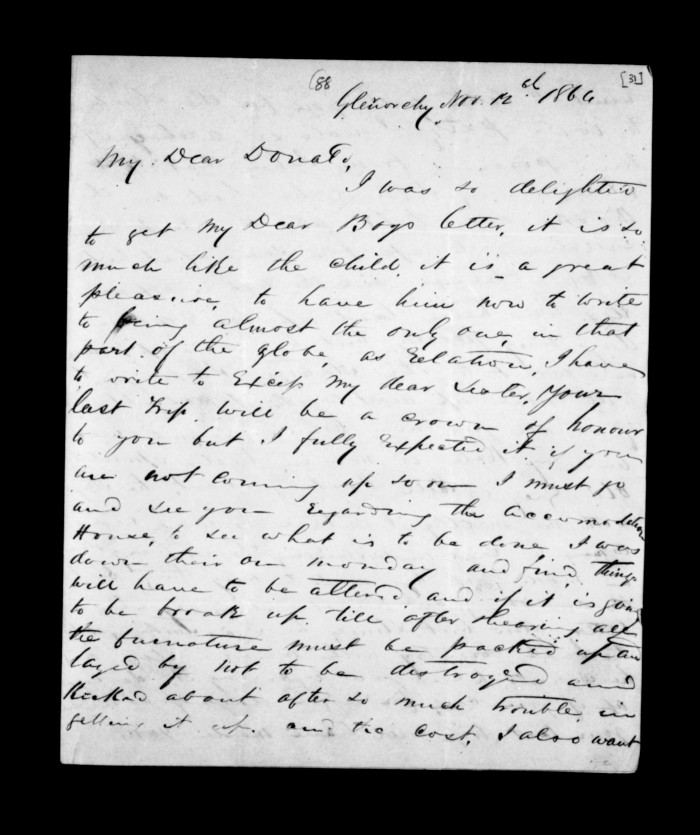 (88
[31]
Glenorchy Nov. 12th 1864
My Dear Donald,
I was so delighted
to get my Dear Boys letter, it is so
much like the child, it is a great
pleasure, to have him now to write
to being almost the only one, in that
part, of the globe, as Relation, I have
to write to Excep my dear Sister, Your
last trip will be a crown of honour
to you but I fully Expected it if you
are not coming up soon I must go
and see you Regarding the accomodation
House, to see what is to be done I was
down their on monday and find things
will have to be altered and if it is going
to be broak up till after shearing all
the furnature must be packed up an
layed by not to be destroyed and
Kicked about after so much trouble, in
getting it up. and the cost, I also want